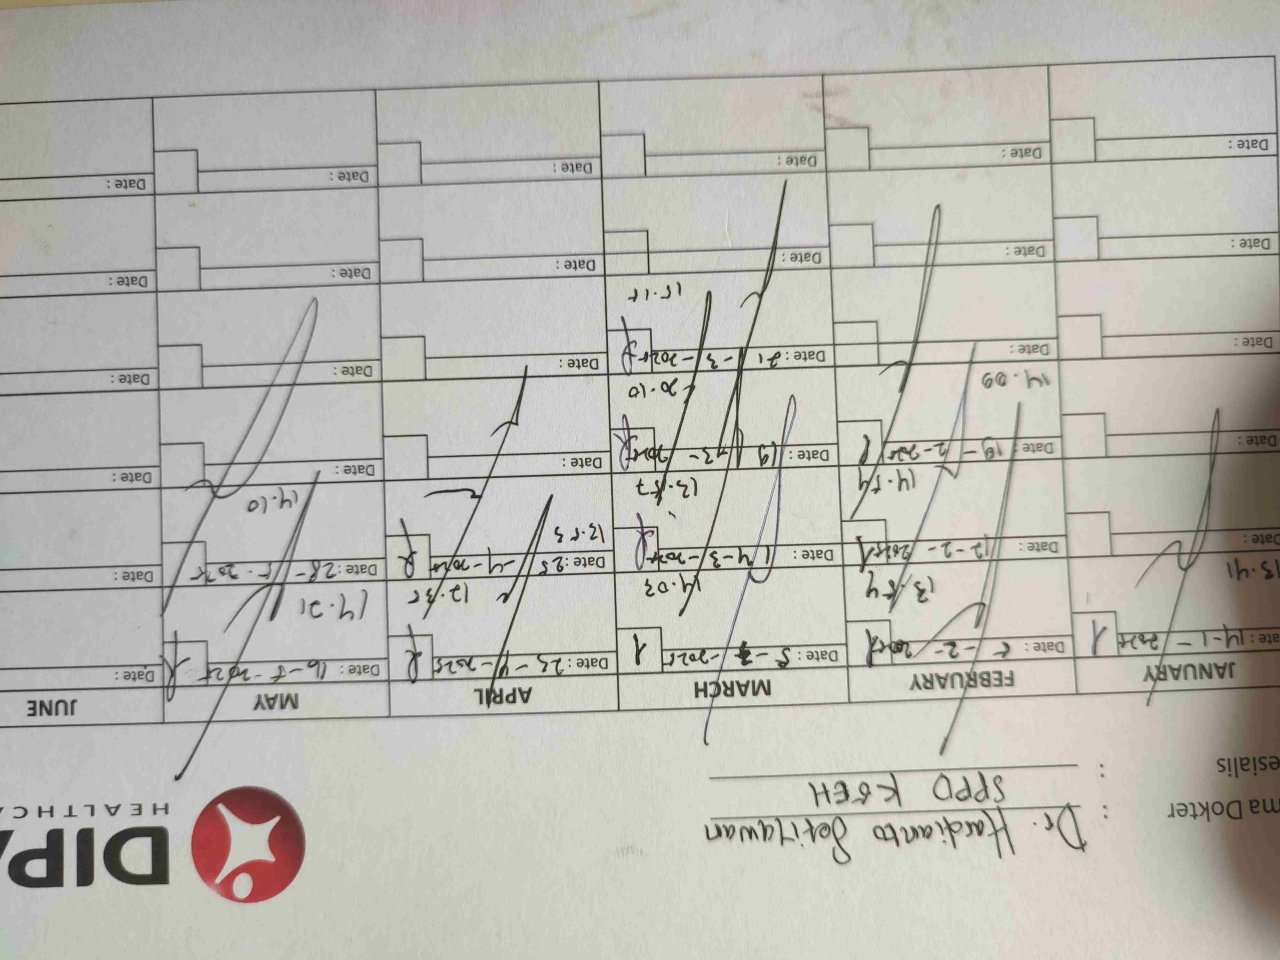 DIPA
HEALTHCA
ma Dokter : Dr. Hardianto Setiawan
esialis : SPPD KGEH
JANUARY FEBRUARY MARCH APRIL MAY JUNE
ate: 14-1-2025 Date: 5-2-2025 Date: 5-3-2025 Date: 23-4-2025 Date: 16-5-2025 Date:
13.41 13.54 14.03 12.35 14.21
Date: Date: 12-2-2025 Date: 14-3-2025 Date: 25-4-2025 Date: 28-5-2025 Date:
14.54 13.57 13.53 14.10
Date: Date: 19-2-2025 Date: 19-3-2025 Date: Date: Date:
14.09 20.10
Date: Date: Date: 21-3-2025 Date: Date: Date:
15.15
Date: Date: Date: Date: Date: Date:
Date: Date: Date: Date: Date: Date: